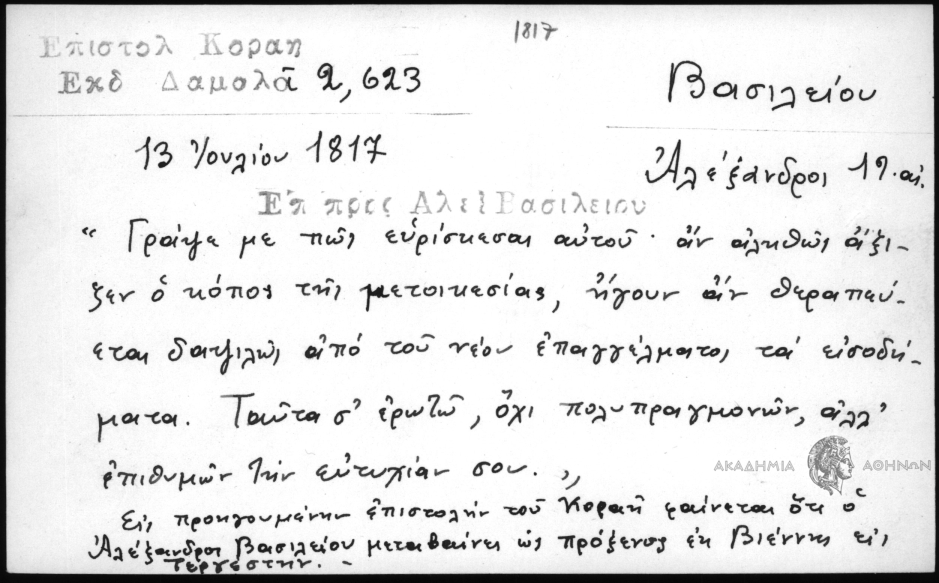 1817
Επιστολ Κοραη
Εκδ Δαμαλᾶ 2,623
Βασιλείου
13 Ἰουλίου 1817
Ἀλέξανδρος 19. αἰ.
Επ προς Αλεξ Βασιλειου
“ Γράψε με πῶς εὑρίσκεσαι αὐτοῦ· ἂν ἀληθῶς ἄξι-
ζεν ὁ κόπος τῆς μετοικεσίας, ἤγουν ἂν θεραπεύ-
εται δαψιλῶς ἀπό τοῦ νέου ἐπαγγέλματος τά εἰσοδή-
ματα. Ταῦτα σ’ ἐρωτῶ, ὄχι πολυπραγμονῶν, ἀλλ’
ἐπιθυμῶν τήν εὐτυχίαν σου. „
ΑΚΑΔΗΜΙΑ ΑΘΗΝΩΝ
Εἰς προηγουμένην ἐπιστολήν τοῦ Κοραῆ φαίνεται ὅτι ὁ
Ἀλέξανδρος Βασιλείου μεταβαίνει ὡς πρόξενος ἐκ Βιέννης εἰς
Τεργέστην. –